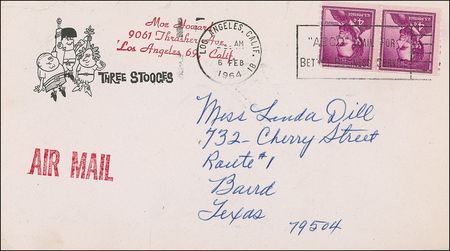 Moe Howard
9061 Thrasher Ave.
Los Angeles, 69, Calif.
THREE STOOGES
LOS ANGELES, CALIF.
AM
6 FEB
1964
AIR MAIL
Miss Linda Dill
732- Cherry Street
Route #1
Baird
Texas
79504